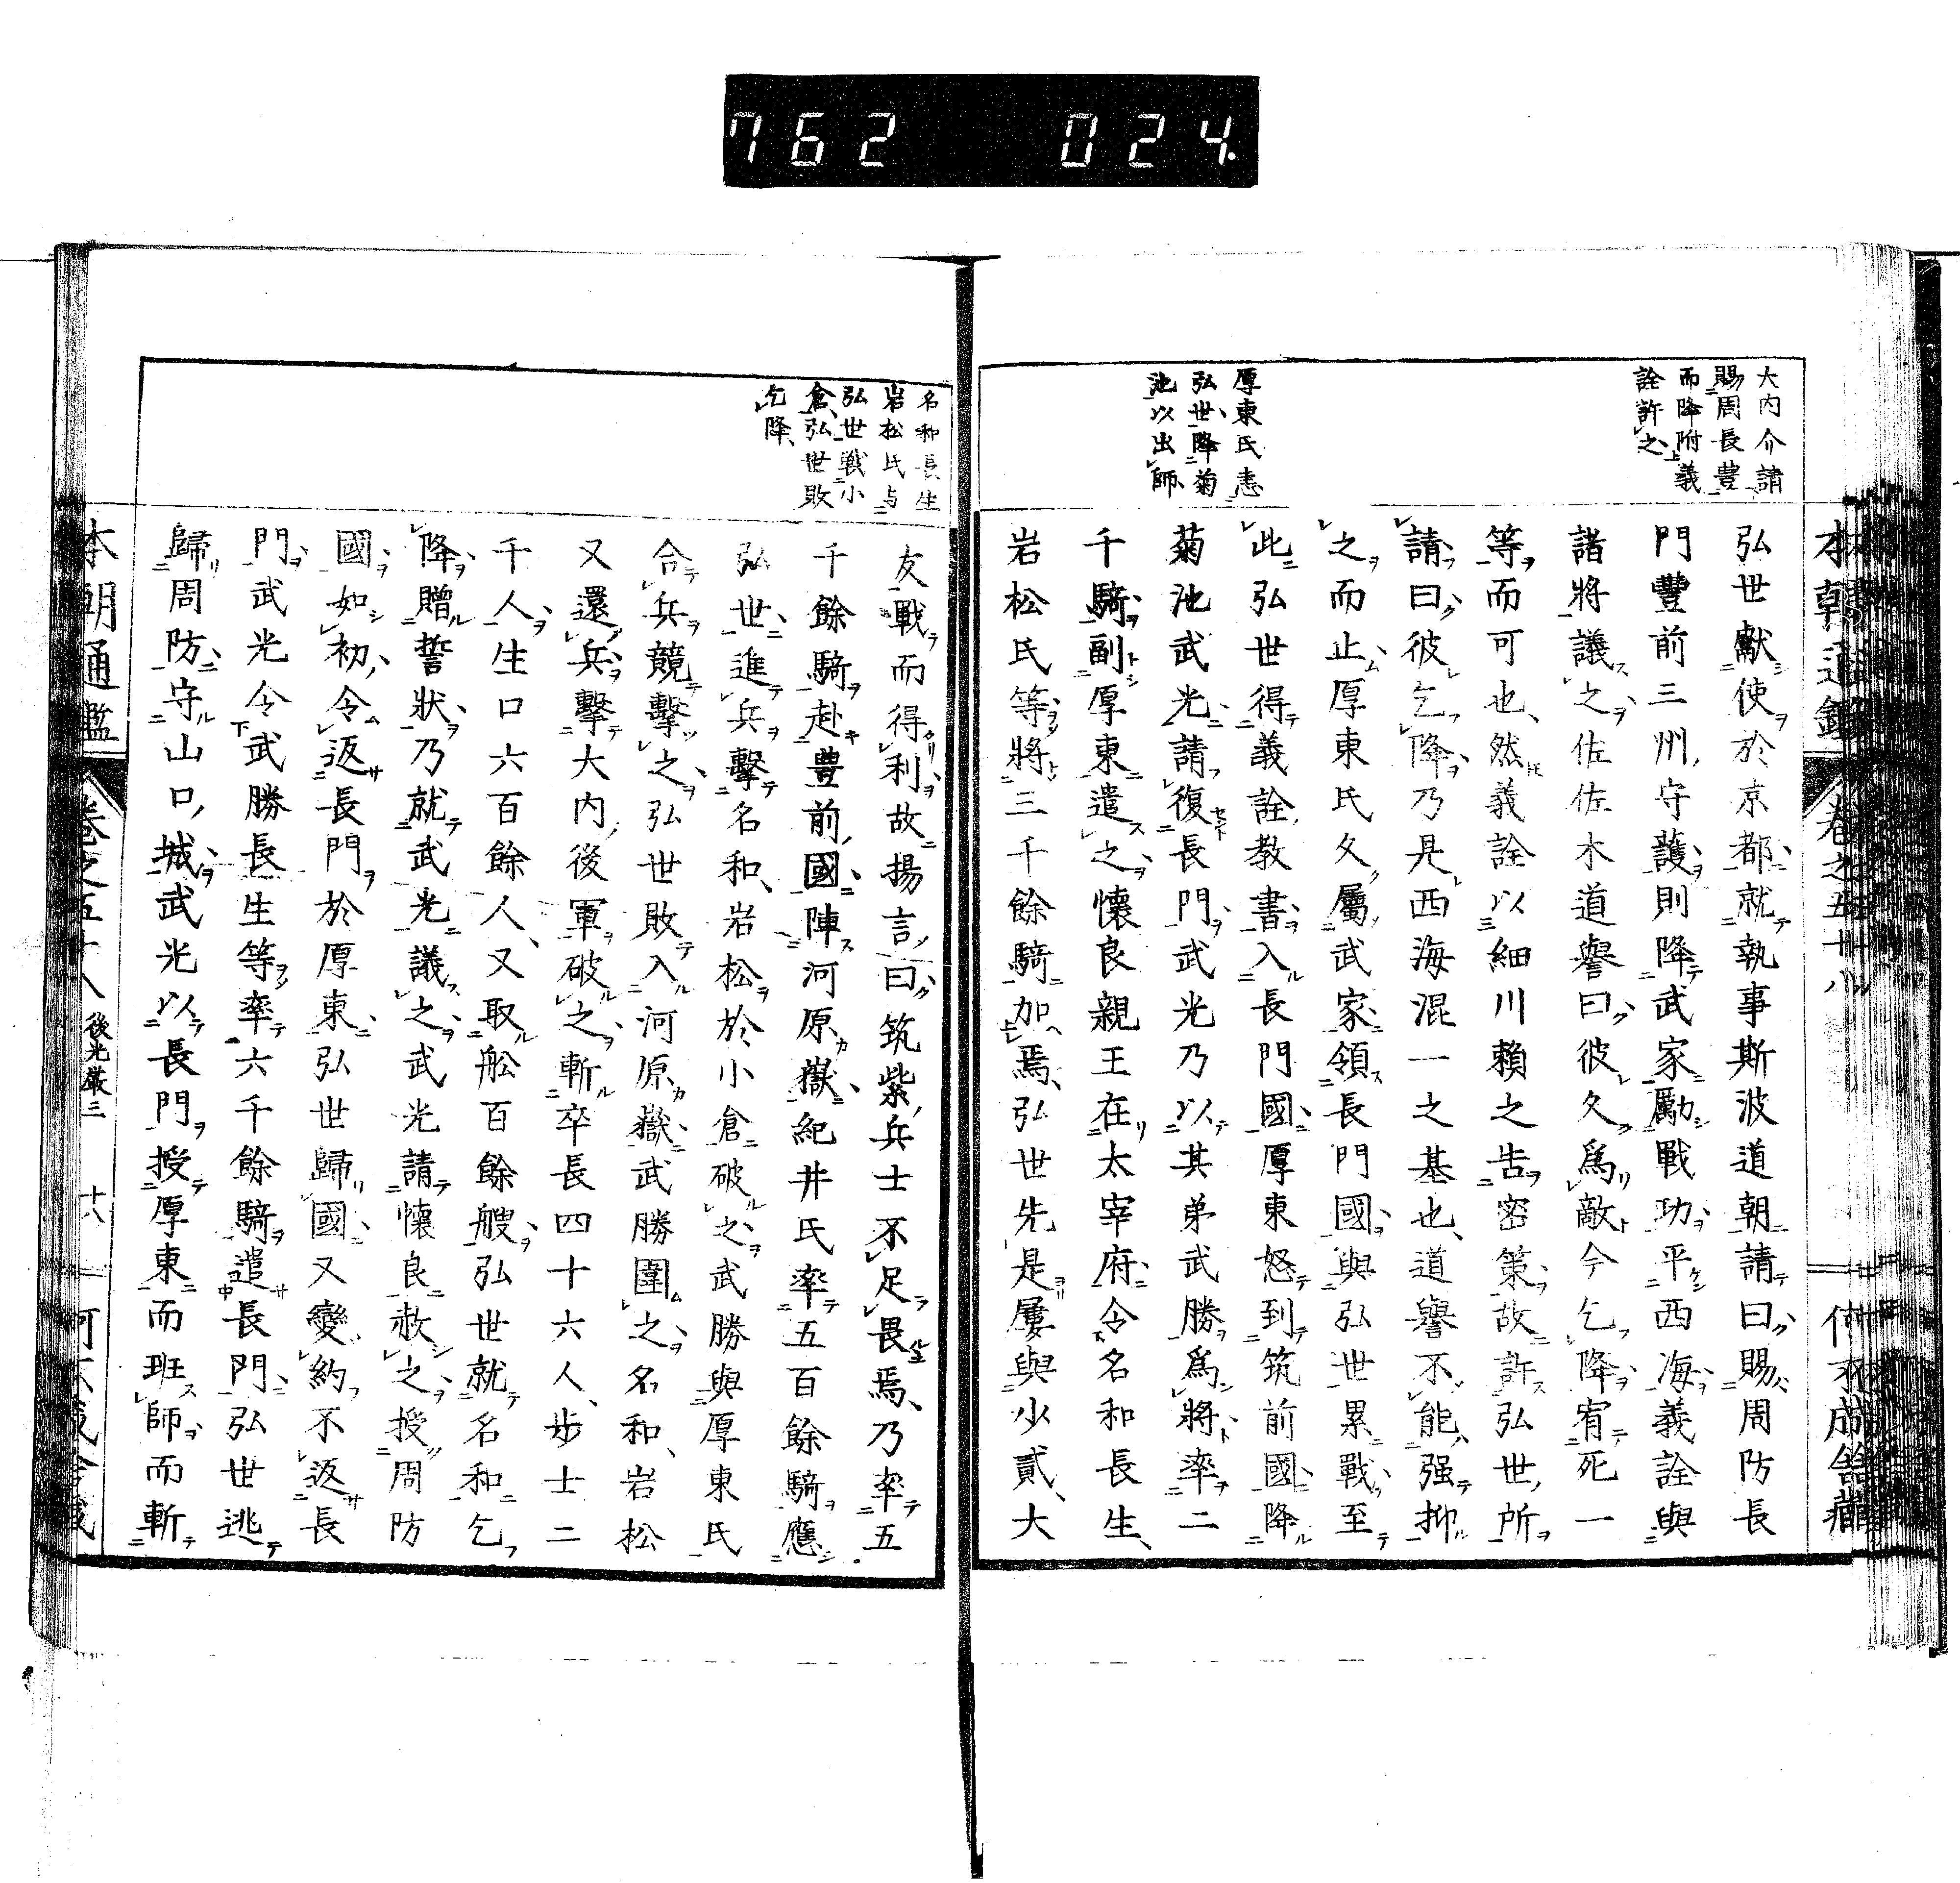 762 024.
本朝通鑑 卷之五十八
大内介請
賜周長豊
而降附義
詮許之
厚東氏恚
弘世降菊
池以出師
弘世獻使於京都就執事斯波道朝請曰賜周防長
門豐前三州守護則降武家勵戰功平西海義詮與
諸將議之佐佐木道譽曰彼久爲敵今乞降宥死一
等而可也然義詮以細川賴之告密策故許弘世所
請曰彼乞降乃是西海混一之基也道譽不能强抑
之而止厚東氏久屬武家領長門國與弘世累戰至
此弘世得義詮教書入長門國厚東怒到筑前國降
菊池武光請復長門武光乃以其弟武勝爲將率二
千騎副厚東遣之懷良親王在太宰府令名和長生
岩松氏等將三千餘騎加焉弘世先是屢與少貳大
名和長生
岩松氏与
弘世戰小
倉弘世敗
乞降
友戰而得利故揚言曰筑紫兵士不足畏焉乃率五
千餘騎赴豊前國陣河原嶽紀井氏率五百餘騎應
弘世進兵擊名和岩松於小倉破之武勝與厚東氏
合兵競擊之弘世敗入河原嶽武勝圍之名和岩松
又還兵擊大内後軍破之斬卒長四十六人步士二
千人生口六百餘人又取舩百餘艘弘世就名和乞
降贈誓狀乃就武光議之武光請懷良赦之授周防
國如初令返長門於厚東弘世歸國又變約不返長
門武光令武勝長生等率六千餘騎遣長門弘世逃
歸周防守山口城武光以長門授厚東而班師而斬
本朝通鑑 卷之五十八 後光嚴三 十六